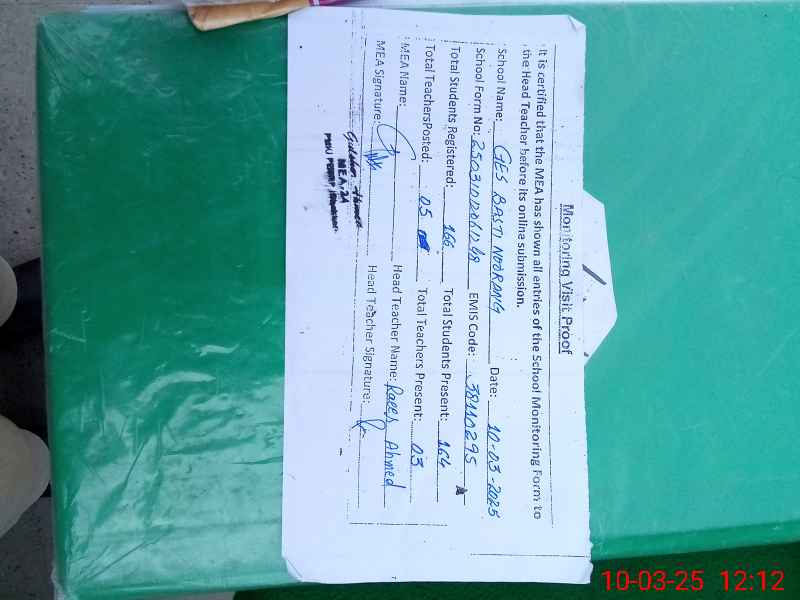 Monitoring Visit Proof
It is certified that the MEA has shown all entries of the School Monitoring Form to
the Head Teacher before its online submission.
School Name: GES BASTI NOORANG Date: 10-03-2025
School Form No: EMIS Code: 38110295
Total Students Registered: 166 Total Students Present: 164
Total TeachersPosted: 05 Total Teachers Present: 03
MEA Name: Head Teacher Name: Ahmed
MEA Signature: Head Teacher Signature:
Gulshan Ahmed
MEA-24
10-03-25 12:12